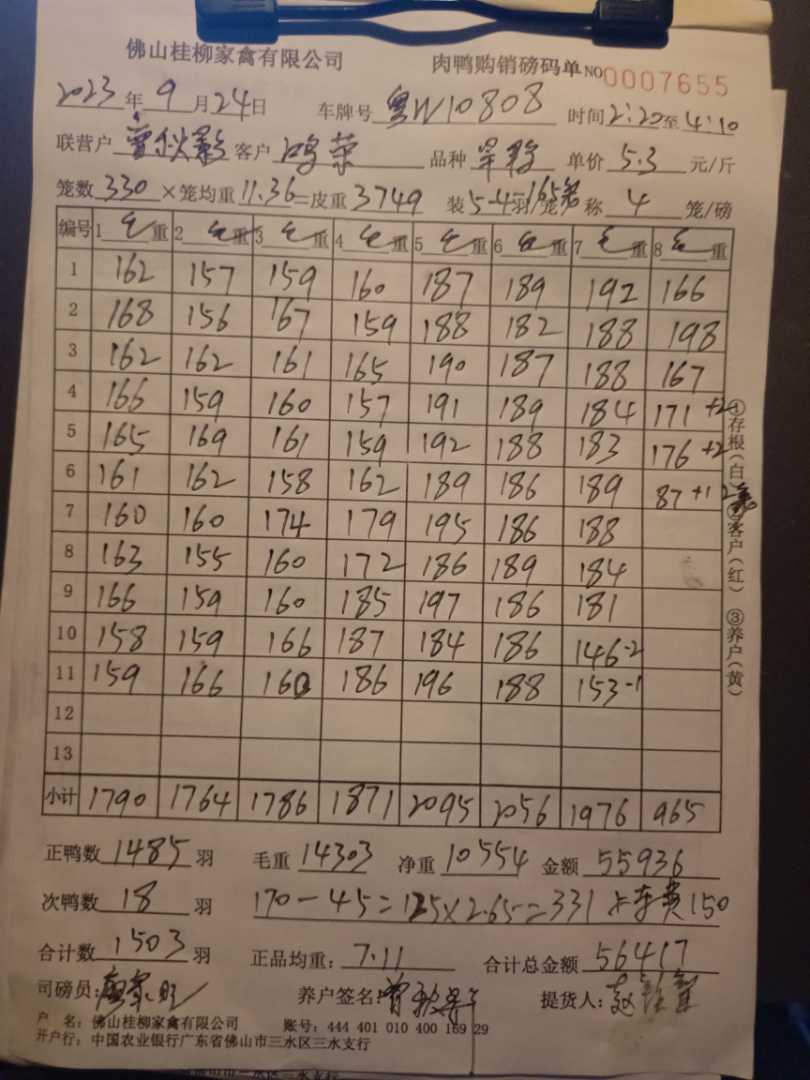 佛山桂柳家禽有限公司 肉鸭购销磅码单 NO 0007655
2023年9月24日 车牌号 粤W10808 时间 2:20至4:10
联营户 客户 鸿荣 品种 单价 5.3 元/斤
笼数 330 ×笼均重 11.36 =皮重 3749 装 5-4 羽/笼 称 4 笼/磅
编号 1 毛重 2 毛重 3 毛重 4 毛重 5 毛重 6 毛重 7 毛重 8 毛重
1 162 157 159 160 187 189 192 166
2 168 156 167 159 188 182 188 198
3 162 162 161 165 190 187 188 167
4 166 159 160 157 191 189 184 171+2
5 165 169 161 159 192 188 183 176+2
6 161 162 158 162 189 186 189 87+1
7 160 160 174 179 195 186 188
8 163 155 160 172 186 189 184
9 166 159 160 185 197 186 181
10 158 159 166 187 184 186 146-2
11 159 166 160 186 196 188 153-1
12
13
小计 1790 1764 1786 1871 2095 2056 1976 965
①存根(白) ②客户(红) ③养户(黄)
正鸭数 1485 羽 毛重 14303 净重 10554 金额 55936
次鸭数 18 羽 170-45=125×2.65=331 卡车费150
合计数 1503 羽 正品均重: 7.11 合计总金额 56417
司磅员: 养户签名: 提货人:
户 名: 佛山桂柳家禽有限公司 账号: 444 401 010 400 169 29
开户行: 中国农业银行广东省佛山市三水区三水支行